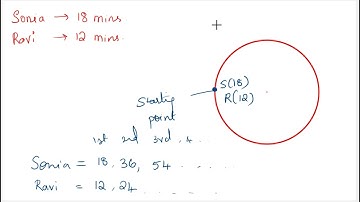 Sonia → 18 mins
Ravi → 12 mins.
S(18)
R(12)
Starting
point
1st 2nd 3rd, 4..
Sonia = 18, 36, 54 ......
Ravi = 12, 24 ......